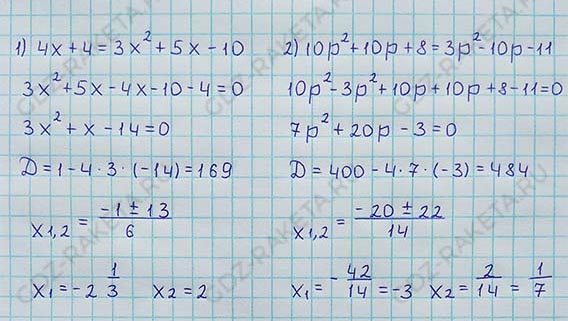 1) 4x + 4 = 3x² + 5x - 10
3x² + 5x - 4x - 10 - 4 = 0
3x² + x - 14 = 0
D = 1 - 4 · 3 · (-14) = 169
x1,2 = (-1 ± 13)/6
x1 = -2 1/3 x2 = 2
2) 10p² + 10p + 8 = 3p² - 10p - 11
10p² - 3p² + 10p + 10p + 8 - 11 = 0
7p² + 20p - 3 = 0
D = 400 - 4 · 7 · (-3) = 484
x1,2 = (-20 ± 22)/14
x1 = -42/14 = -3 x2 = 2/14 = 1/7
GDZ-RAKETA.RU